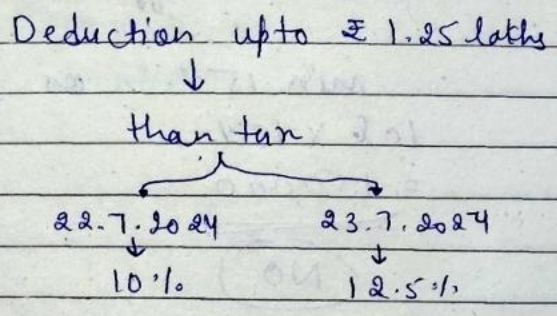 Deduction upto ₹ 1.25 lakhs
than tax
22.7.2024 23.7.2024
10% 12.5%